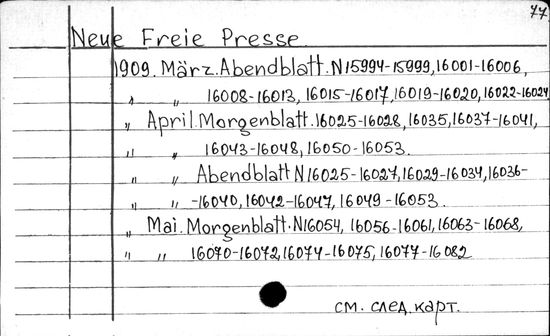 77
Neue Freie Presse
1909. März. Abendblatt. N15994-15999, 16001-16006,
„ „ 16008-16013, 16015-16017, 16019-16020, 16022-16024
„ April. Morgenblatt. 16025-16028, 16035, 16037-16041,
„ „ 16043-16048, 16050-16053.
„ „ Abendblatt N16025-16027, 16029-16034, 16036-
„ „ -16040, 16042-16047, 16049-16053.
„ Mai. Morgenblatt. N16054, 16056-16061, 16063-16068,
„ „ 16070-16072, 16074-16075, 16077-16082
см. след. карт.